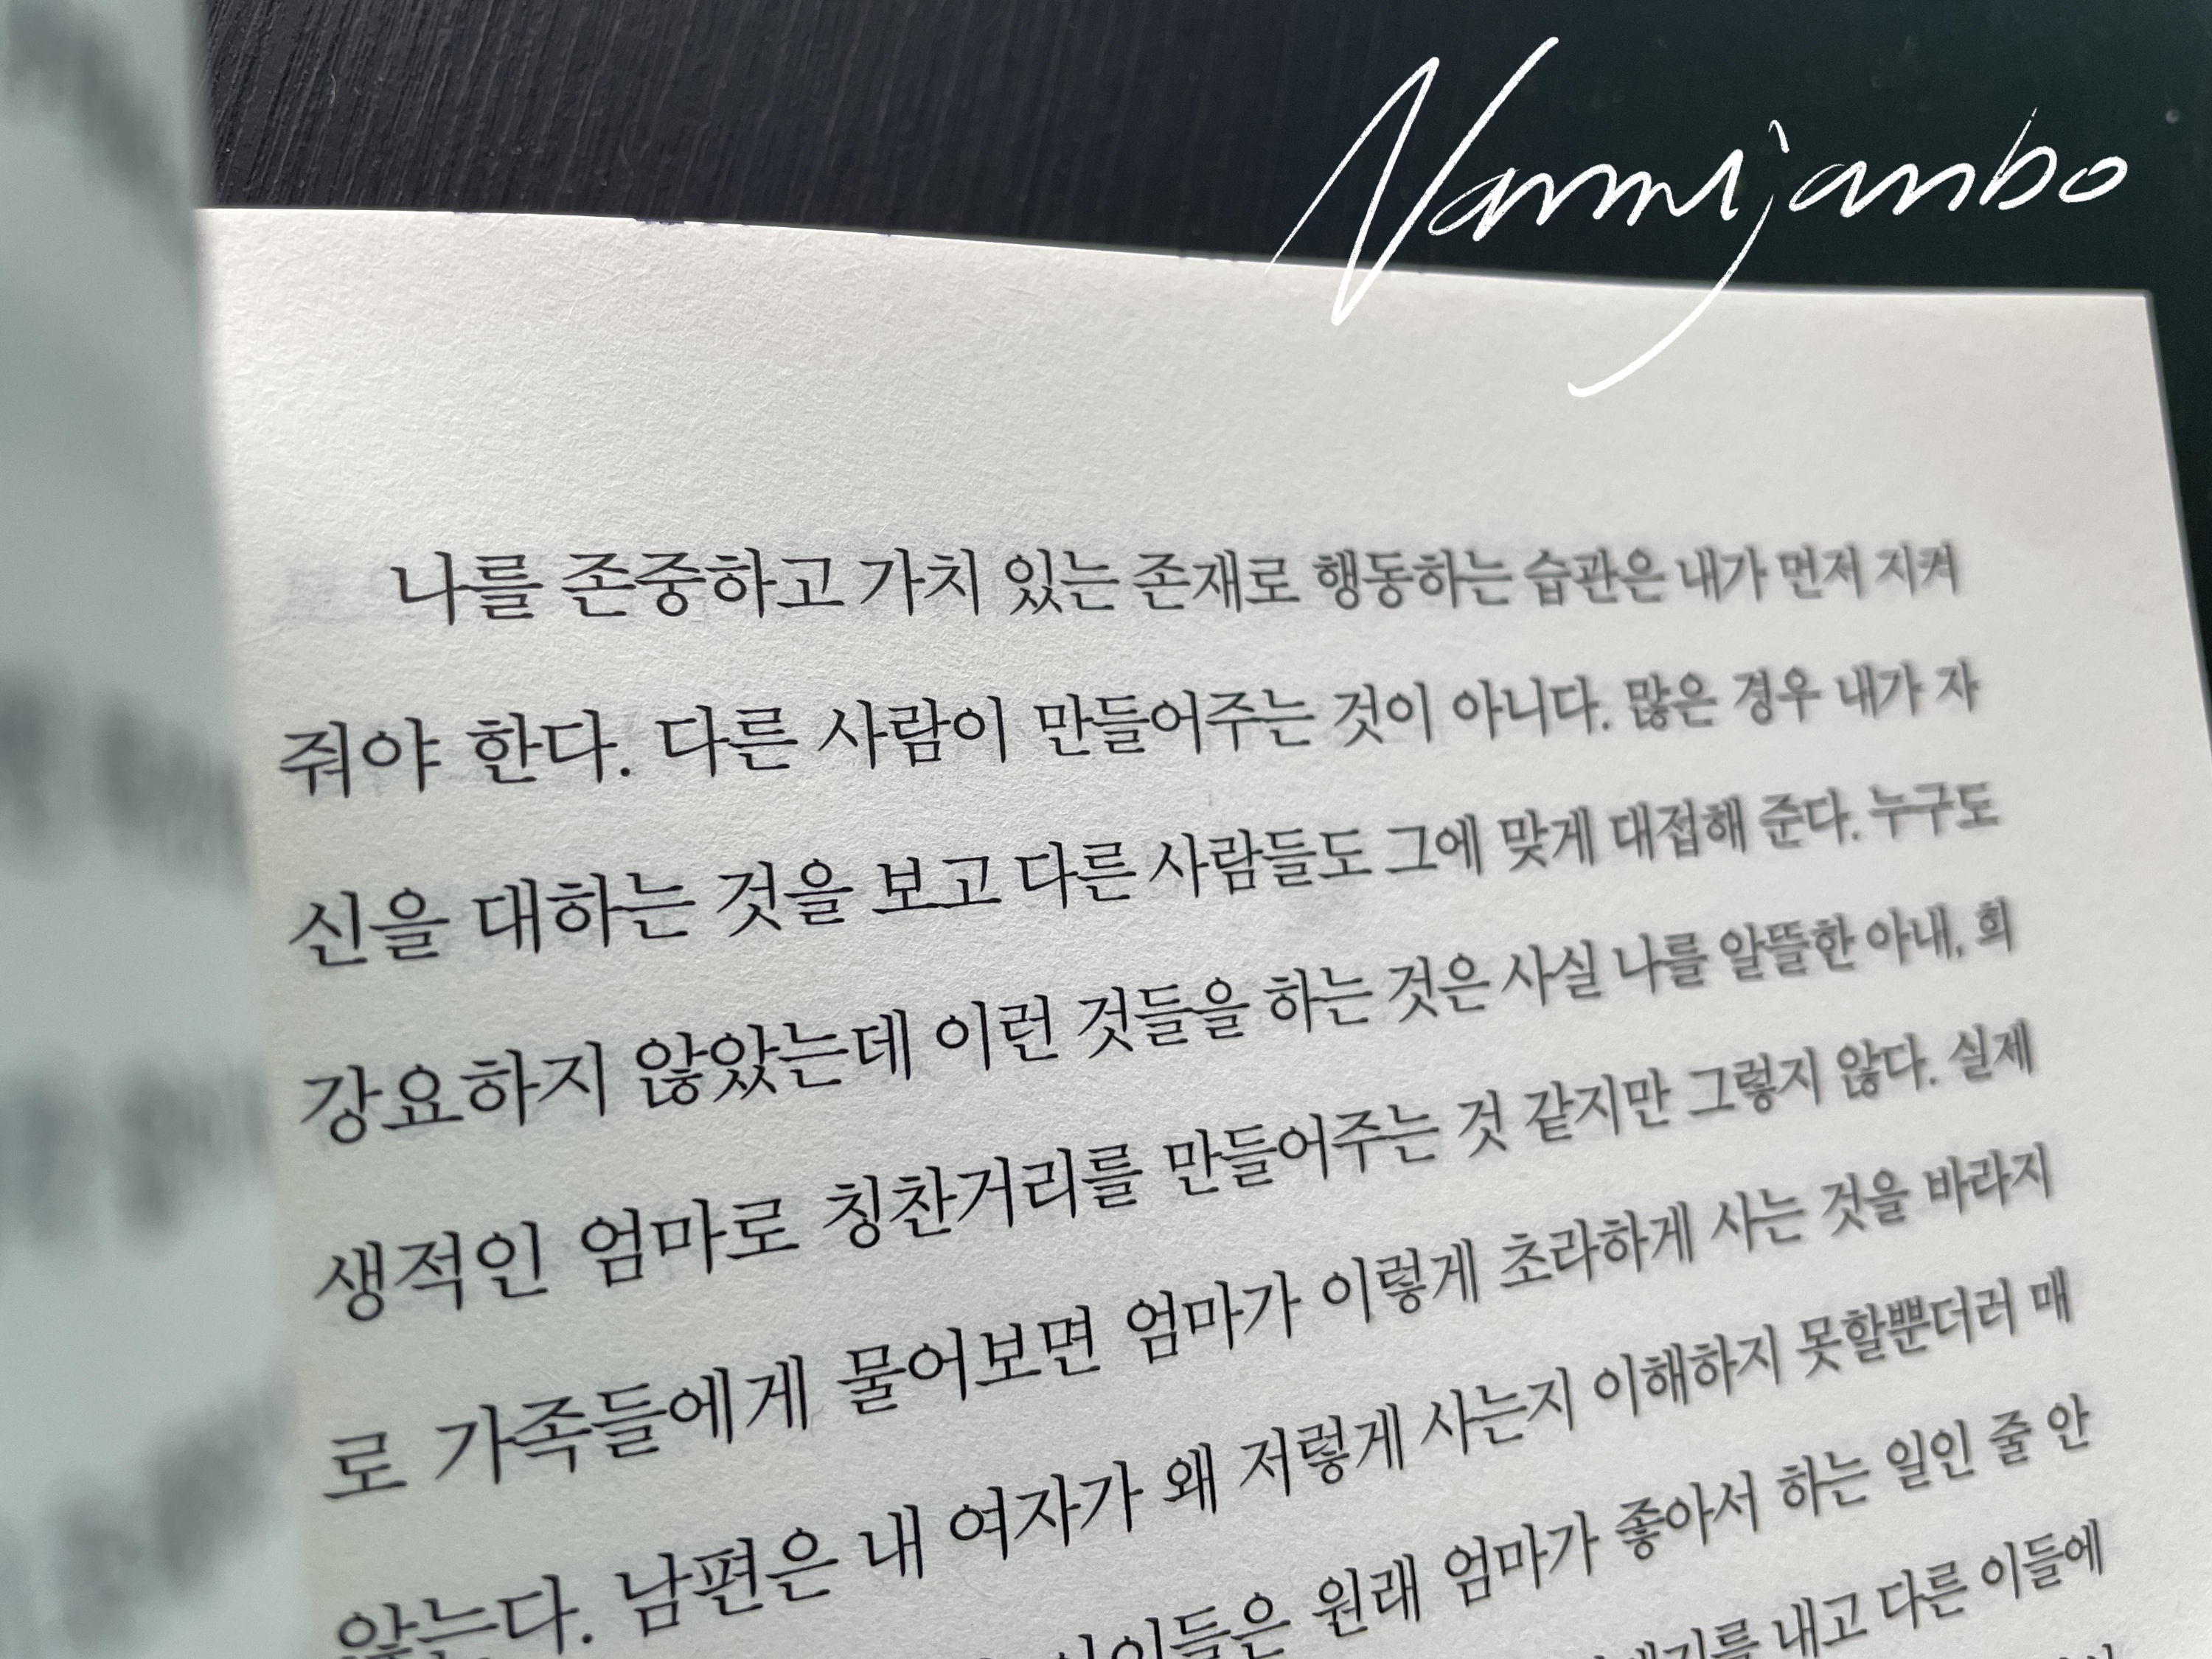 Nammijanbo
나를 존중하고 가치 있는 존재로 행동하는 습관은 내가 먼저 지켜
줘야 한다. 다른 사람이 만들어주는 것이 아니다. 많은 경우 내가 자
신을 대하는 것을 보고 다른 사람들도 그에 맞게 대접해 준다. 누구도
강요하지 않았는데 이런 것들을 하는 것은 사실 나를 알뜰한 아내, 희
생적인 엄마로 칭찬거리를 만들어주는 것 같지만 그렇지 않다. 실제
로 가족들에게 물어보면 엄마가 이렇게 초라하게 사는 것을 바라지
않는다. 남편은 내 여자가 왜 저렇게 사는지 이해하지 못할뿐더러 매
아이들은 원래 엄마가 좋아서 하는 일인 줄 안
내고 다른 이들에